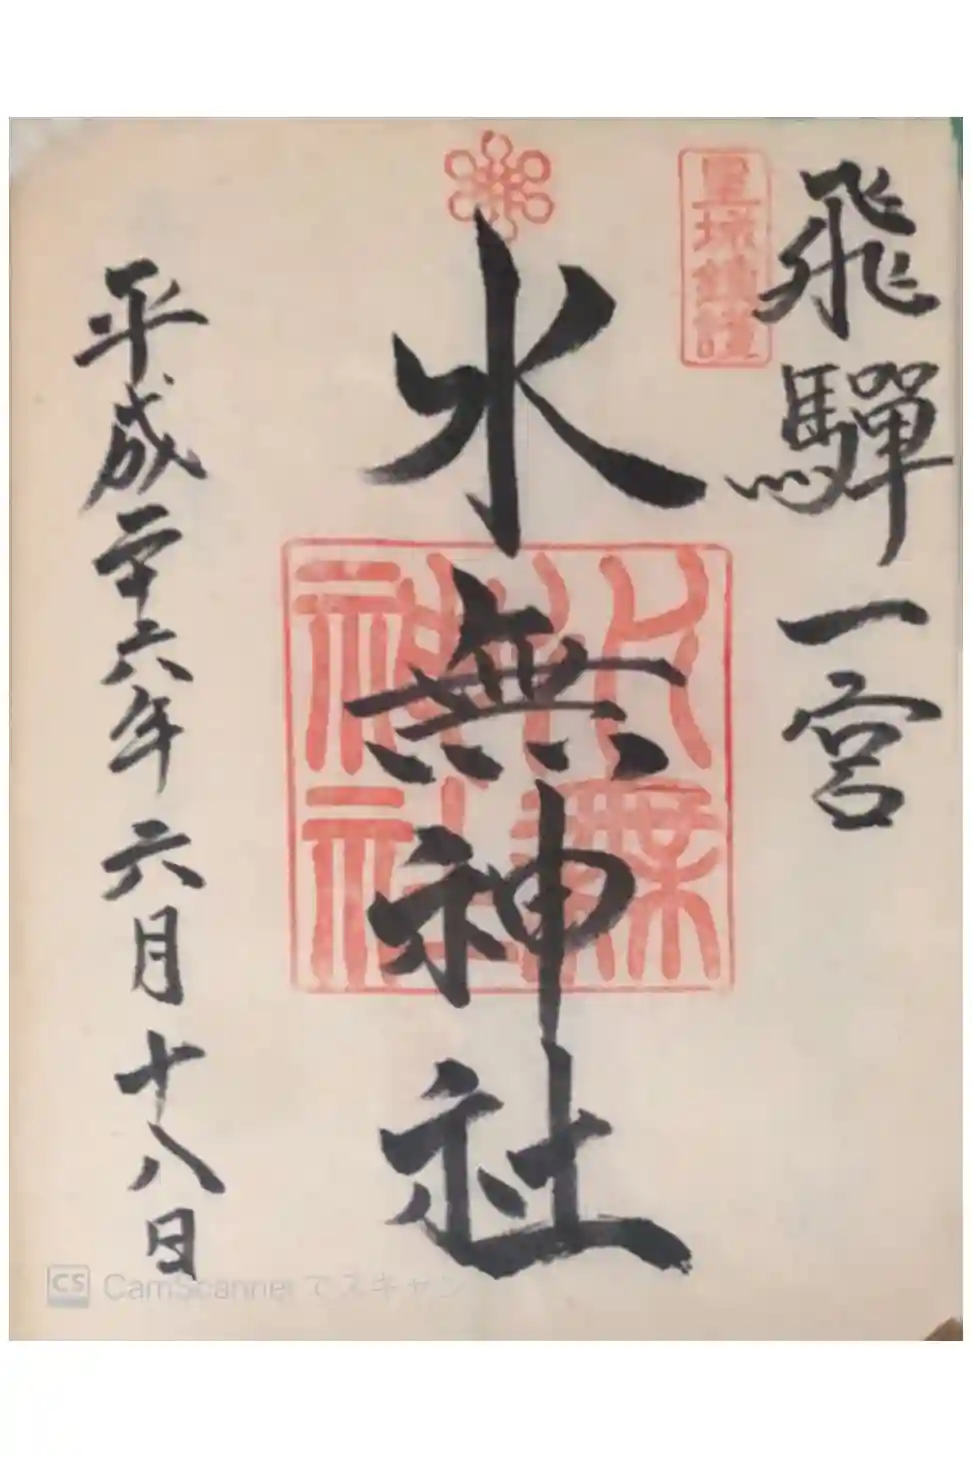 飛驒一宮
水無神社
平成二十六年六月十八日
水無神社
CS CamScannerでスキャン